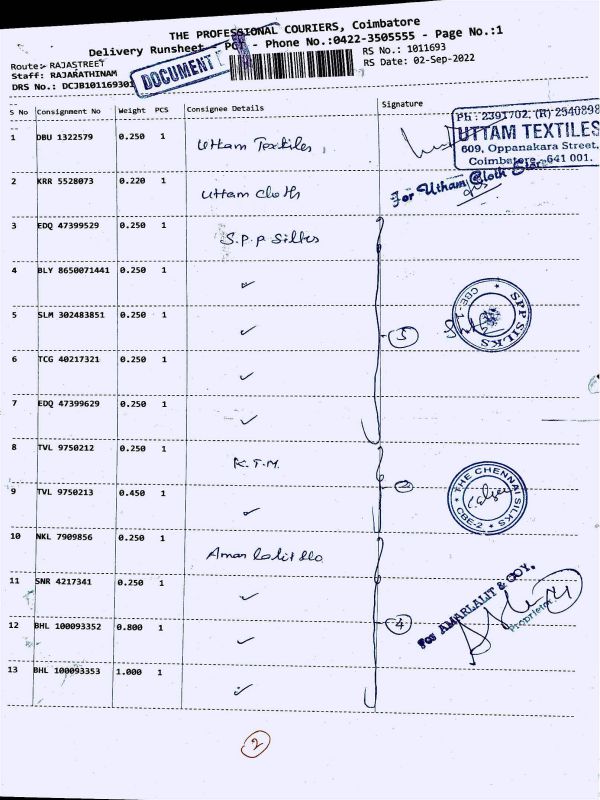 THE PROFESSIONAL COURIERS, Coimbatore
Delivery Runsheet - PCT - Phone No.:0422-3505555 - Page No.:1
Route:- RAJASTREET
Staff: RAJARATHINAM
DRS No.: DCJB101169301
DOCUMENT
RS No.: 1011693
RS Date: 02-Sep-2022
S No Consignment No Weight PCS Consignee Details Signature
Ph : 2391702, (R) 2540898
UTTAM TEXTILES
609, Oppanakara Street,
Coimbatore - 641 001.
1 DBU 1322579 0.250 1 Uttam Textiles
2 KRR 5528073 0.220 1 Uttam Cloth
For Utham Cloth Store
3 EDQ 47399529 0.250 1 S.P.P Silks
4 BLY 8650071441 0.250 1 ✓
5 SLM 302483851 0.250 1 ✓
5
SPP SILKS
CBE-1
6 TCG 40217321 0.250 1 ✓
7 EDQ 47399629 0.250 1 ✓
8 TVL 9750212 0.250 1 K.T.M.
9 TVL 9750213 0.450 1 ✓
2
THE CHENNAI SILKS
CBE-2
10 NKL 7909856 0.250 1 Aman Lalit
11 SNR 4217341 0.250 1 ✓
For AMARLALIT & COY.
Proprietor
12 BHL 100093352 0.800 1 ✓
4
13 BHL 100093353 1.000 1 ✓
2